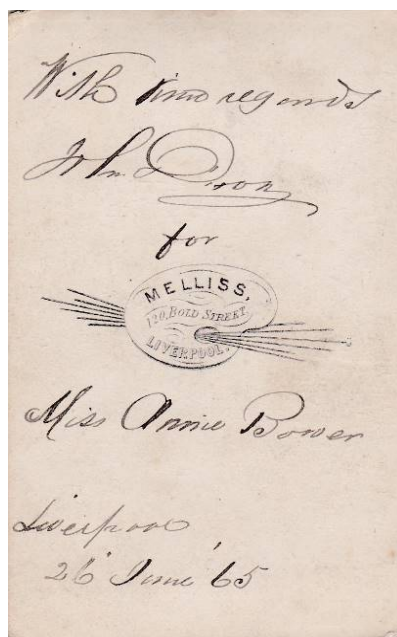 With kind regards
Jno. Dixon
for
MELLISS,
120, BOLD STREET,
LIVERPOOL.
Miss Annie Bower
Liverpool
26 June '65